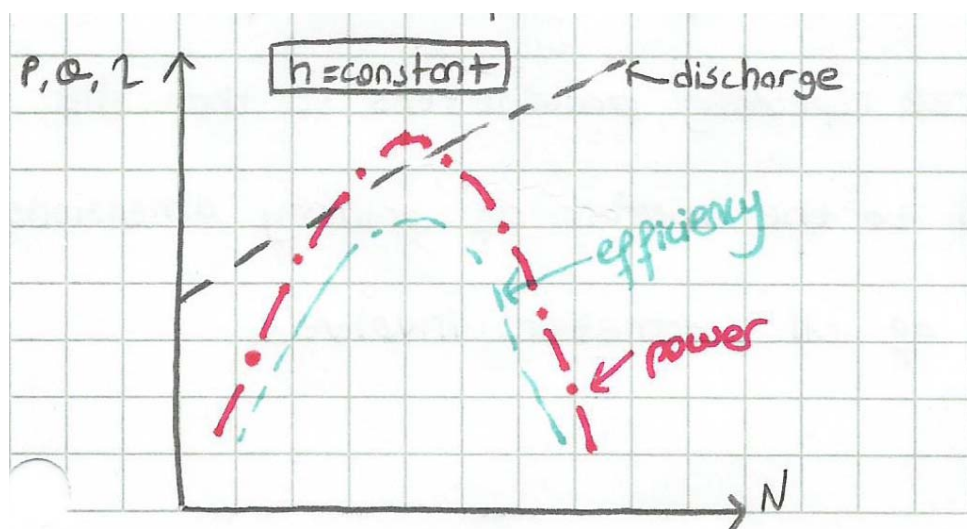 P, Q, η
h = constant
discharge
efficiency
power
N